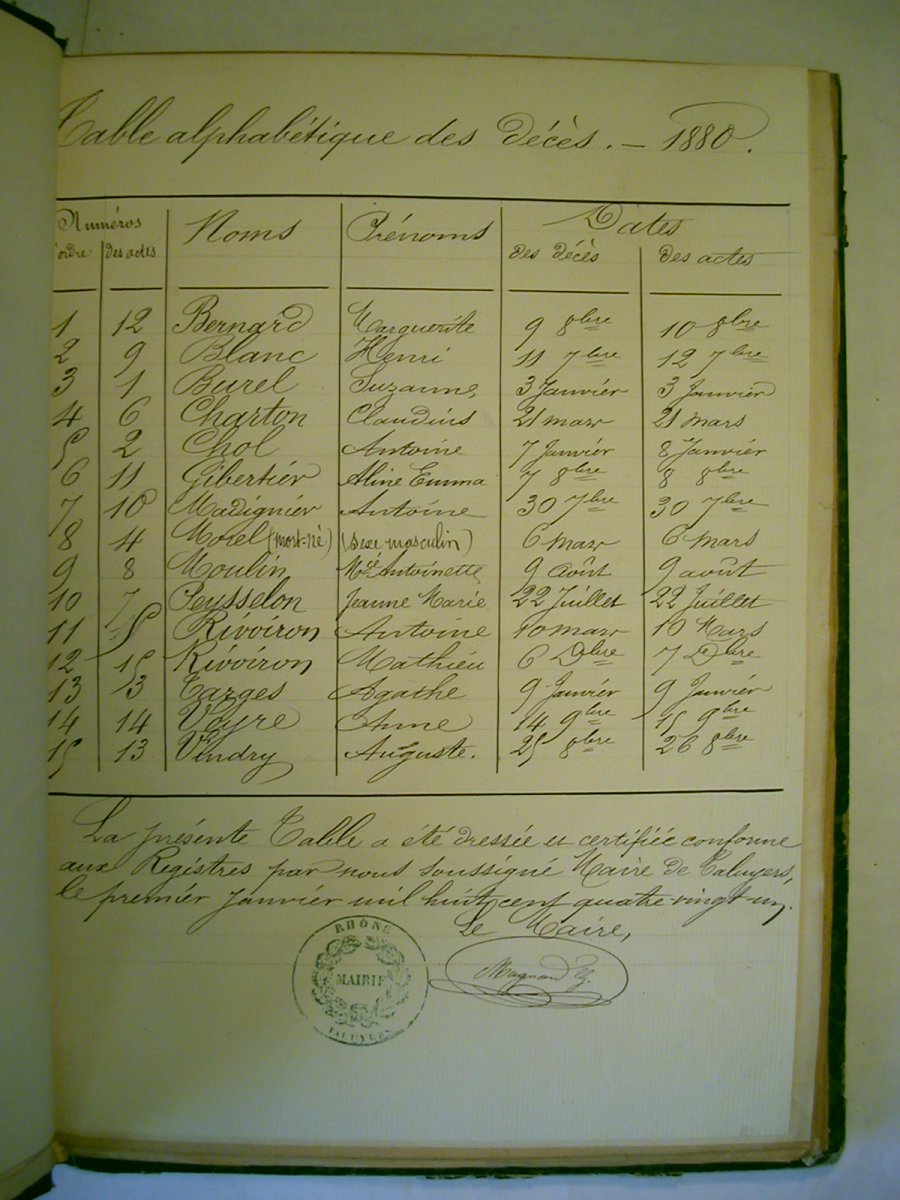 Table alphabétique des décès. — 1880.
Numéros Noms Prénoms Dates
d'ordre des actes des décès des actes
1 12 Bernard Marguerite 9 8bre 10 8bre
2 9 Blanc Henri 11 7bre 12 7bre
3 1 Burel Suzanne 3 Janvier 3 Janvier
4 6 Charton Claudius 21 mars 21 mars
5 2 Chol Antoine 7 Janvier 8 Janvier
6 11 Gibertier Aline Emma 7 8bre 8 8bre
7 10 Madignier Antoine 30 7bre 30 7bre
8 4 Morel (mort-né) (sexe masculin) 6 mars 6 mars
9 8 Moulin Mie Antoinette 9 août 9 août
10 7 Peysselon Jeanne Marie 22 Juillet 22 Juillet
11 5 Rivoiron Antoine 10 mars 10 Mars
12 15 Rivoiron Mathieu 6 Dbre 7 Dbre
13 3 Targes Agathe 9 Janvier 9 Janvier
14 14 Veyre Anne 14 9bre 15 9bre
15 13 Vindry Auguste. 25 8bre 26 8bre
La présente Table a été dressée et certifiée conforme
aux Registres par nous soussigné Maire de Taluyers,
le premier janvier mil huit cent quatre vingt un.
Le Maire,
Magnand
RHÔNE
MAIRIE
TALUYERS